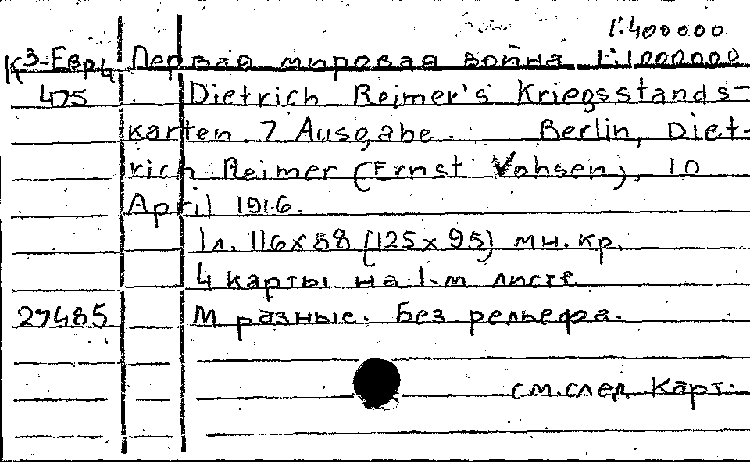 1:400000
К3-Евр/4 Первая мировая война. 1:1000000
475 Dietrich Reimer's Kriegsstands-
karten. 7 Ausgabe. Berlin, Diet-
rich Reimer (Ernst Vohsen), 10
April 1916.
1л. 116x88 (125x95) мн. кр.
4 карты на 1-м листе
27485 М разные. Без рельефа.
см. след карт.